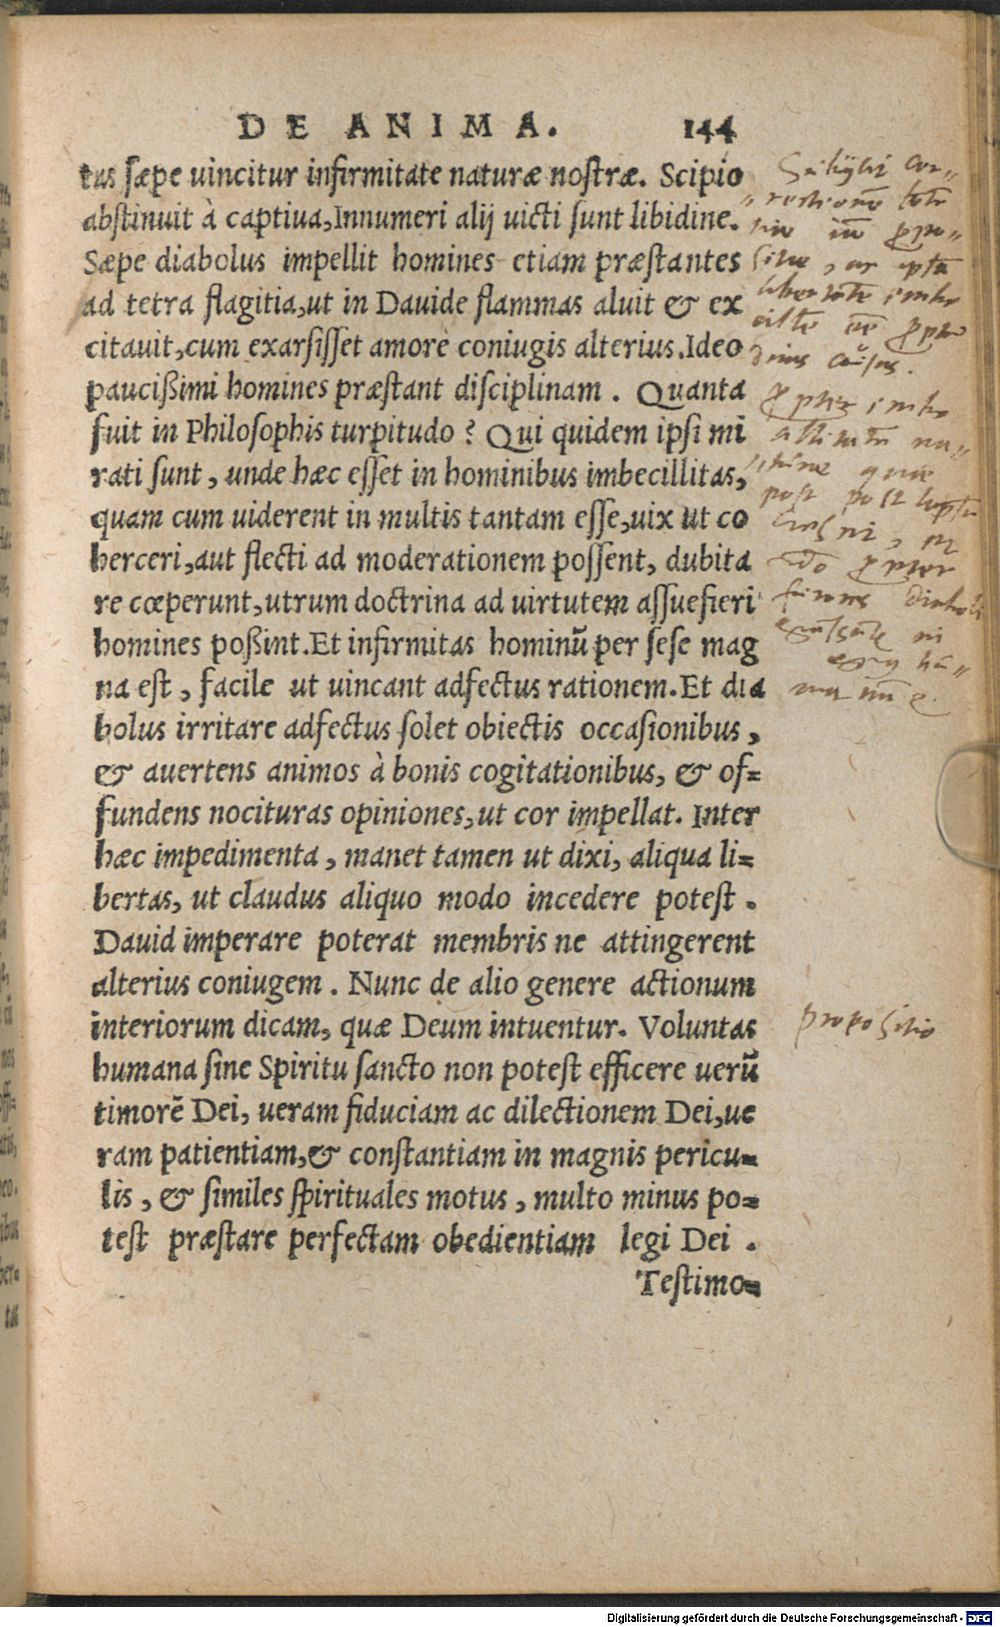 DE ANIMA. 144
tas sæpe uincitur infirmitate naturæ nostræ. Scipio
abstinuit à captiua, Innumeri alij uicti sunt libidine.
Sæpe diabolus impellit homines etiam præstantes
ad tetra flagitia, ut in Dauide flammas aluit & ex
citauit, cum exarsisset amore coniugis alterius. Ideo
paucißimi homines præstant disciplinam. Quanta
fuit in Philosophis turpitudo? Qui quidem ipsi mi
rati sunt, unde hæc esset in hominibus imbecillitas,
quam cum uiderent in multis tantam esse, uix ut co
herceri, aut flecti ad moderationem possent, dubita
re cœperunt, utrum doctrina ad uirtutem assuefieri
homines poßint. Et infirmitas hominũ per sese mag
na est, facile ut uincant adfectus rationem. Et dia
bolus irritare adfectus solet obiectis occasionibus,
& auertens animos à bonis cogitationibus, & of=
fundens nocituras opiniones, ut cor impellat. Inter
hæc impedimenta, manet tamen ut dixi, aliqua li=
bertas, ut claudus aliquo modo incedere potest.
Dauid imperare poterat membris ne attingerent
alterius coniugem. Nunc de alio genere actionum
interiorum dicam, quæ Deum intuentur. Voluntas
humana sine Spiritu sancto non potest efficere uerũ
timorẽ Dei, ueram fiduciam ac dilectionem Dei, ue
ram patientiam, & constantiam in magnis pericu=
lis, & similes spirituales motus, multo minus po=
test præstare perfectam obedientiam legi Dei.
Testimo=
propositio
Digitalisierung gefördert durch die Deutsche Forschungsgemeinschaft - DFG